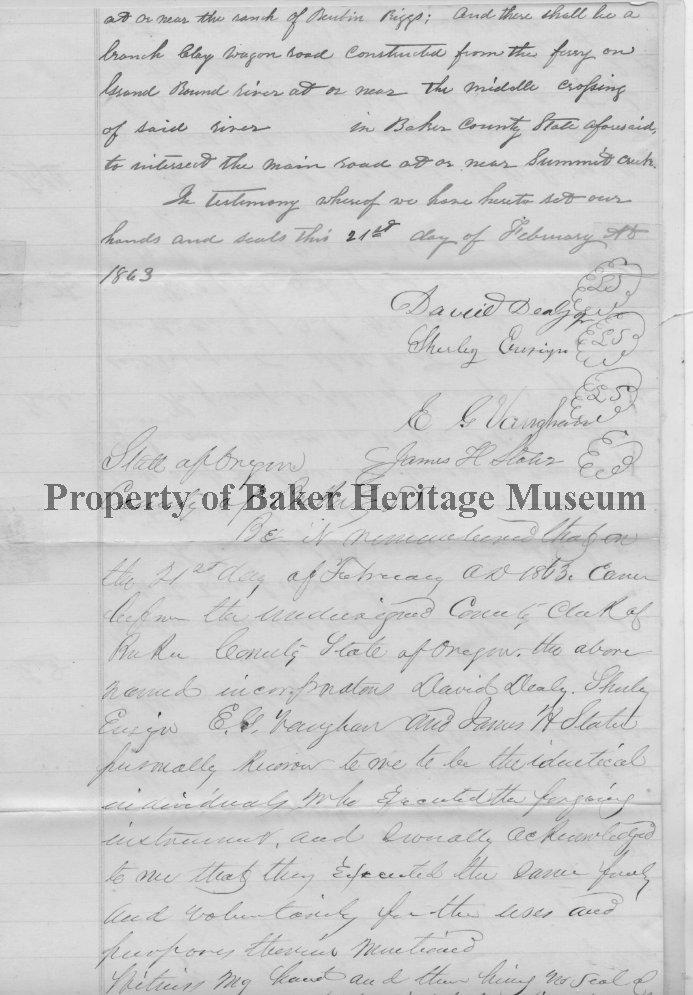 at or near the ranch of Reubin Riggs; And there shall be a
branch Clay Wagon road constructed from the ferry on
Grand Round river at or near the middle crossing
of said river in Baker County State aforesaid,
to intersect the main road at or near Summit Creek.
In testimony whereof we have hereto set our
hands and seals this 21st day of February AD
1863
David Dealy
Shurley Ensign
E G Vaughan
State of Oregon James H Slater
County of
Property of Baker Heritage Museum
Be it remembered that on
the 21st day of February AD 1863. Came
before the undersigned County Clerk of
Baker County State of Oregon. the above
named incorporators David Dealy. Shurley
Ensign E. G. Vaughan and James H Slater
personally known to me to be the identical
individuals who Executed the forgoing
instrument, and severally acknowledged
to me that they Executed the same freely
and voluntarily for the uses and
purposes therein mentioned
Witness my hand and there being no seal of